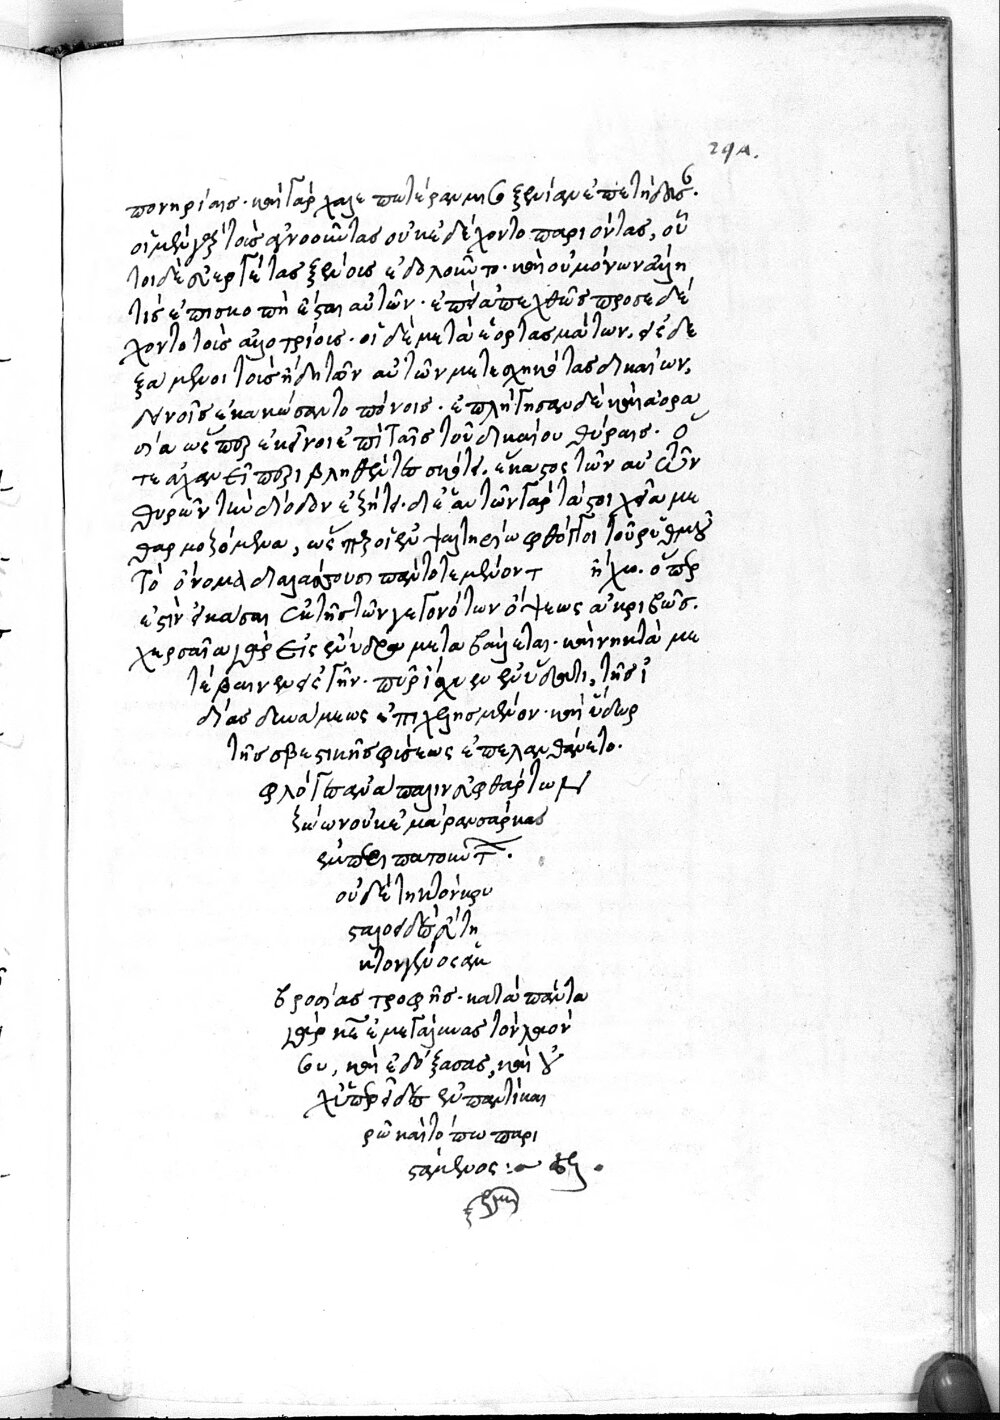 29A.
πονηρίαις· καὶ γὰρ χαλεπωτέραν μισοξενίαν ἐπετήδευσ.
οἱ μὲν γὰρ τοὺς ἀγνοοῦντας οὐκ ἐδέχοντο παριόντας, οὗ
τοι δὲ εὐεργέτας ξένους ἐδουλοῦντο· καὶ οὐ μόνον ἀλλ' ἤ
τις ἐπισκοπὴ ἔσται αὐτῶν· ἐπεὶ ἀπεχθῶς προσεδέ
χοντο τοὺς ἀλλοτρίους· οἱ δὲ μετὰ ἑορτασμάτων εἰσδε
ξάμενοι τοὺς ἤδη τῶν αὐτῶν μετεσχηκότας δικαίων,
δεινοῖς ἐκάκωσαντο πόνοις· ἐπλήγησαν δὲ καὶ ἀορα
σία ὥσπερ ἐκεῖνοι ἐπὶ ταῖς τοῦ δικαίου θύραις· ὅ
τε ἀχανεῖ περιβληθέντες σκότει ἕκαστος τῶν αὐτῶν
θυρῶν τὴν δίοδον ἐζήτει· δι' ἑαυτῶν γὰρ τὰ στοιχεῖα με
θαρμοζόμενα, ὥσπερ ἐν ψαλτηρίῳ φθόγγοι τοῦ ῥυθμοῦ
τὸ ὄνομα διαλάσσουσι πάντοτε μένοντ ἤχω. ὅπερ
ἐστὶν εἰκάσαι ἐκ τῆς τῶν γεγονότων ὄψεως ἀκριβῶς.
χερσαῖα γὰρ εἰς ἔνυδρα μετεβάλλετο· καὶ νηκτὰ με
τέβαινεν εἰς γῆν· πῦρ ἴσχυεν ἐν ὕδατι, τῆς ἰ
δίας δυνάμεως ἐπιλελησμένον· καὶ ὕδωρ
τῆς σβεστικῆς φύσεως ἐπελανθάνετο.
φλόγες ἀνάπαλιν εὐφθάρτων
ζώων οὐκ ἐμάραναν σάρκας
ἐμπεριπατούντ.
οὐδὲ τηκτὸν κρυ
σταλοειδὲς εὔτη
κτον γένος ἀμ
βροσίας τροφῆς· κατὰ πάντα
γὰρ κε ἐμεγάλυνας τὸν λαόν
σου, καὶ ἐδόξασας, καὶ οὐ
χ' ὑπερεῖδες ἐν παντὶ και
ρῷ καὶ τόπω παρι
στάμενος:~